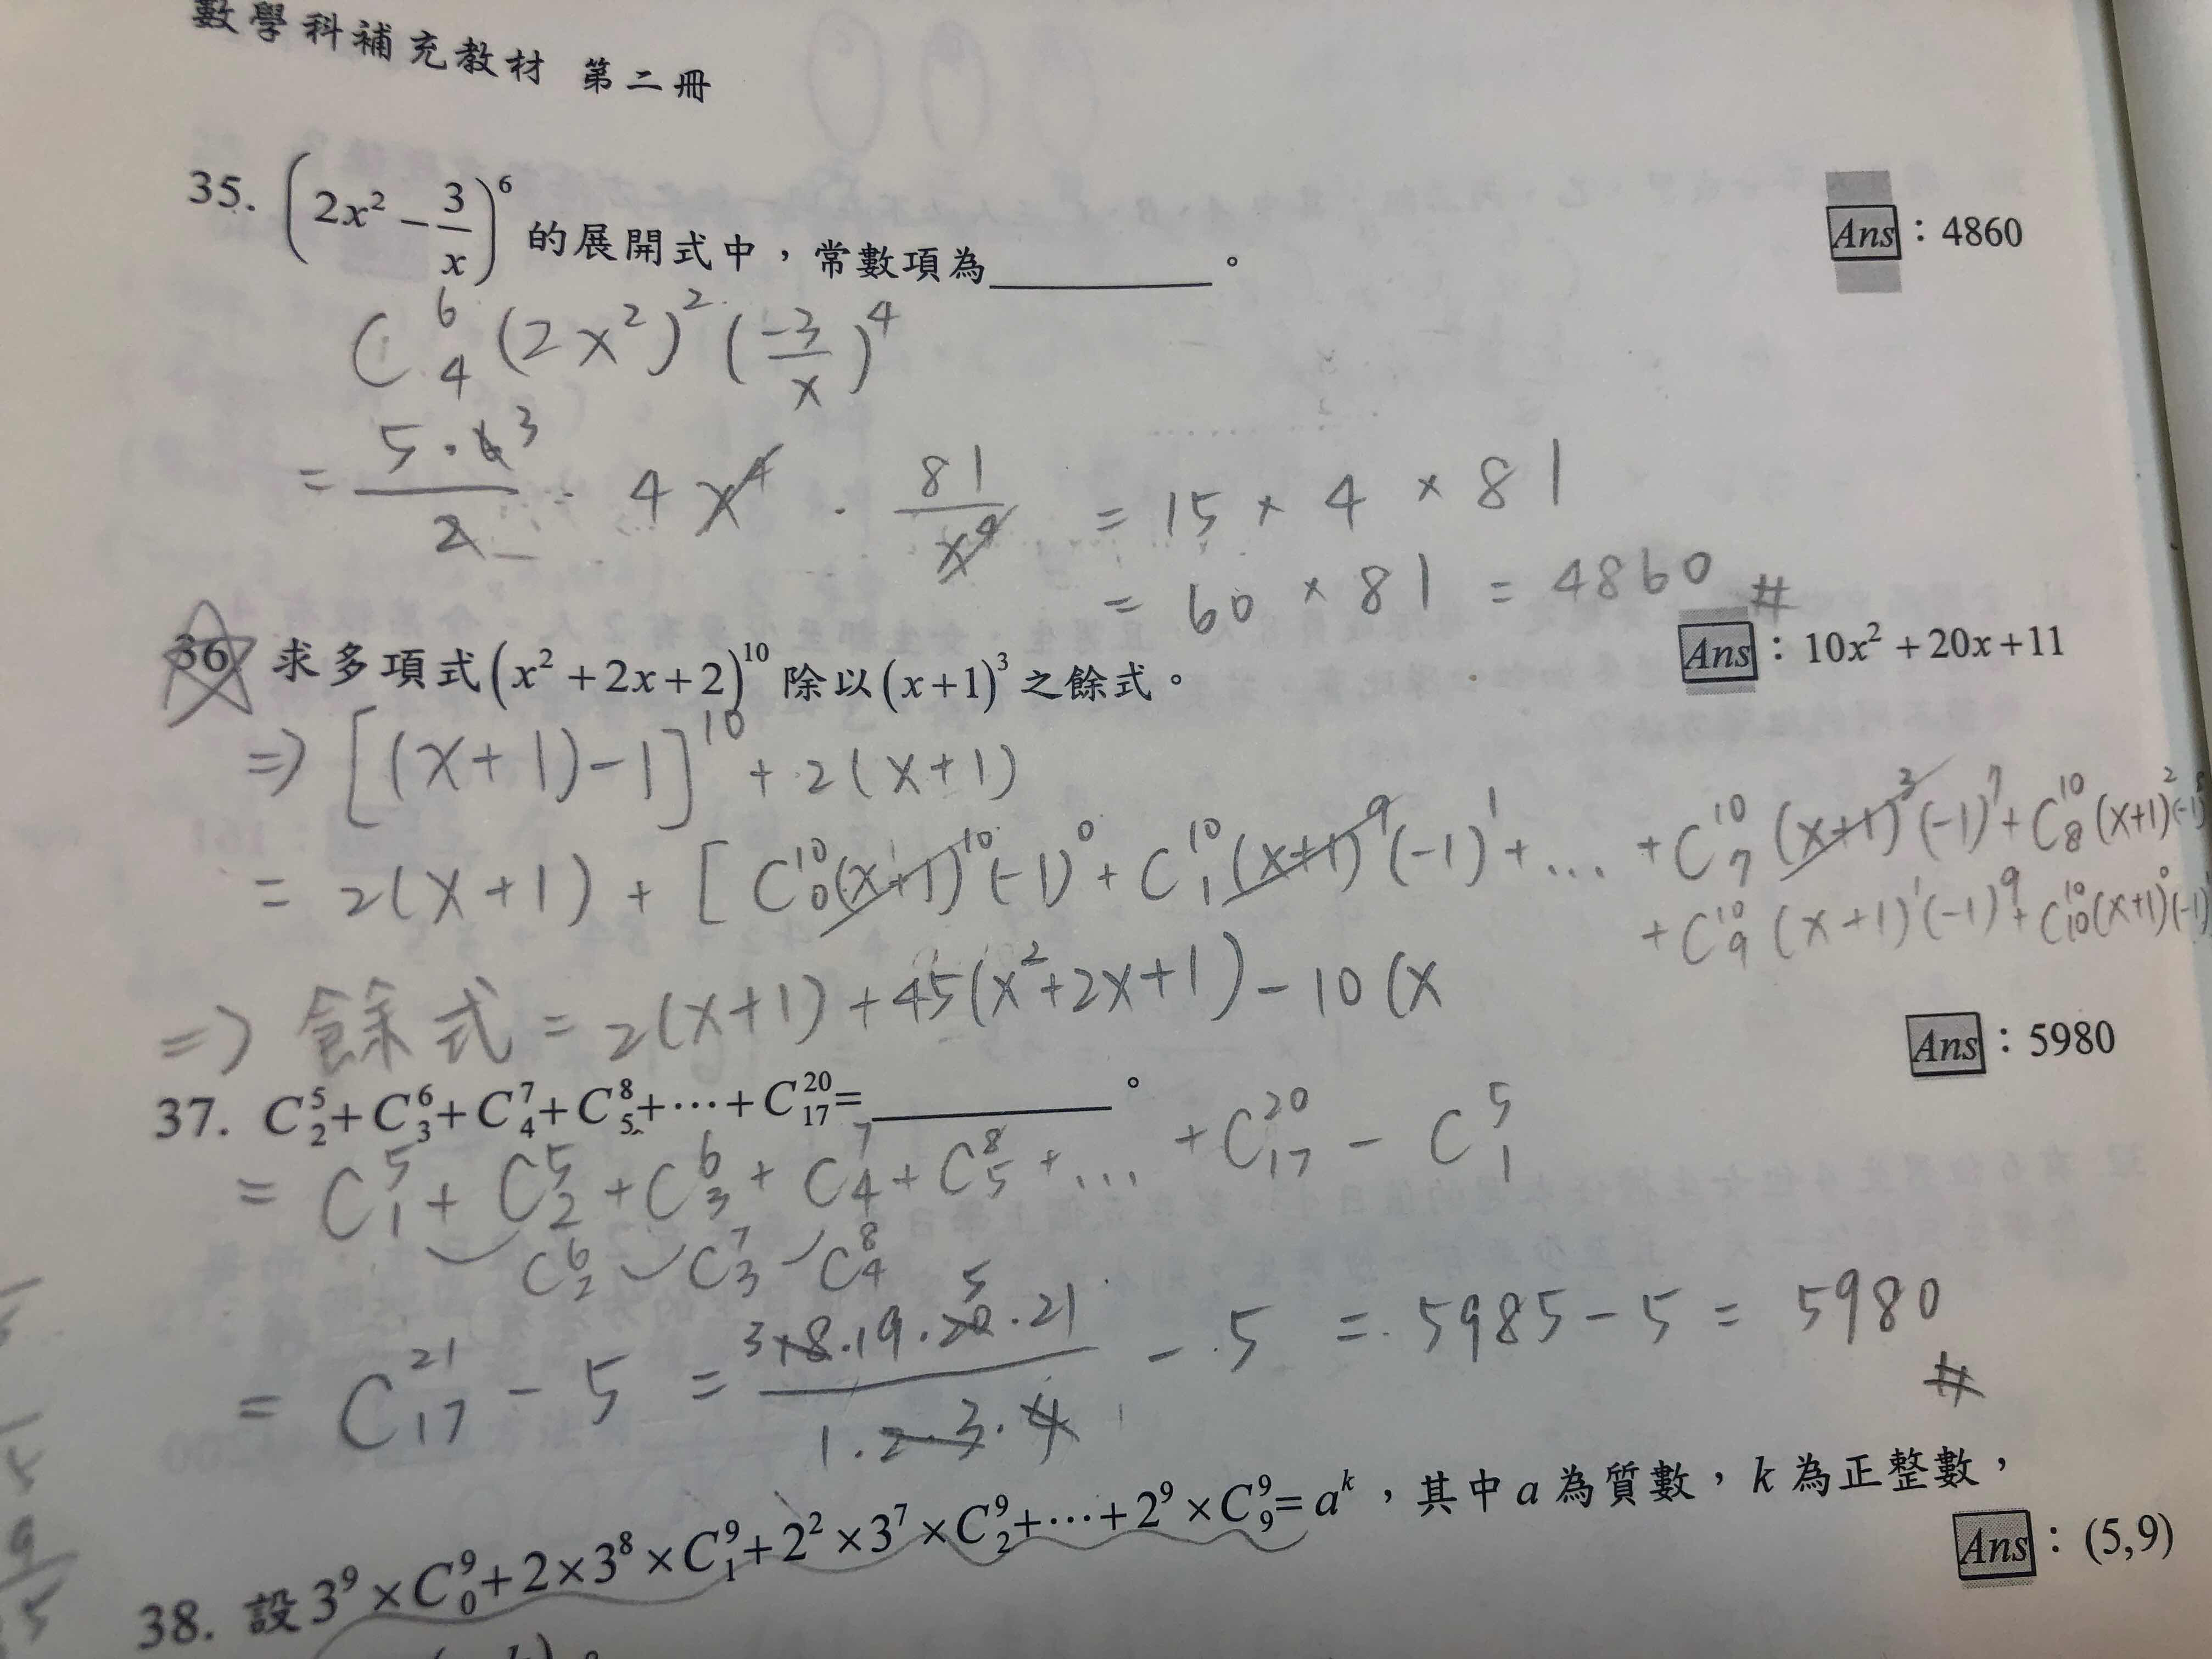 數學科補充教材 第二冊
35. (2x² − 3/x)⁶ 的展開式中，常數項為______。
Ans：4860
C⁶₄ (2x²)² (−3/x)⁴
= 5·6³/2 · 4x⁴ · 81/x⁴ = 15 × 4 × 81
= 60 × 81 = 4860 #
36. 求多項式(x² + 2x + 2)¹⁰ 除以(x+1)³ 之餘式。
Ans：10x² + 20x + 11
⇒ [(x+1)−1]¹⁰ + 2(x+1)
= 2(x+1) + [C¹⁰₀(x+1)¹⁰(−1)⁰ + C¹⁰₁(x+1)⁹(−1)¹ + ... + C¹⁰₇(x+1)³(−1)⁷ + C¹⁰₈(x+1)²(−1)⁸
+ C¹⁰₉(x+1)¹(−1)⁹ + C¹⁰₁₀(x+1)⁰(−1)
⇒ 餘式 = 2(x+1) + 45(x²+2x+1) − 10(x
Ans：5980
37. C⁵₂ + C⁶₃ + C⁷₄ + C⁸₅ + ⋯ + C²⁰₁₇ = ______。
= C⁵₁ + C⁵₂ + C⁶₃ + C⁷₄ + C⁸₅ + ... + C²⁰₁₇ − C⁵₁
C⁶₂ C⁷₃ C⁸₄
= C²¹₁₇ − 5 = 3 18·19·20 5·21/1·2·3·4 − 5 = 5985 − 5 = 5980 #
38. 設 3⁹ × C⁹₀ + 2 × 3⁸ × C⁹₁ + 2² × 3⁷ × C⁹₂ + ⋯ + 2⁹ × C⁹₉ = aᵏ，其中 a 為質數，k 為正整數，
Ans：(5,9)